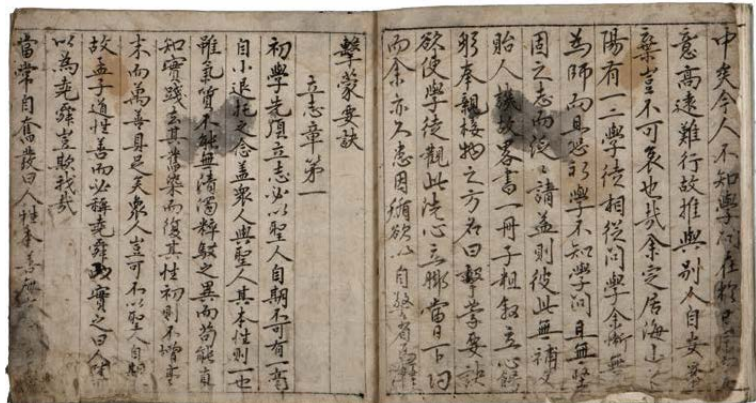 中矣今人不知學問在於日用
意高遠難行故推與別人自安暴
棄豈不可哀也哉余定居海山之
陽有一二學徒相從問學余慚無
為師而且恐初學不知學問且無堅
固之志而泛〻請益則彼此無補反
貽人譏故畧書一冊子粗敘立心飭
躬奉親接物之方名曰擊蒙要訣
欲使學徒觀此洗心立脚當日下功
而余亦久患因循欲以自警省
擊蒙要訣
立志章第一
初學先須立志必以聖人自期不可有一毫
自小退托之念盖衆人與聖人其本性則一也
雖氣質不能無清濁粹駁之異而苟能眞
知實踐去其舊染而復其性初則不增毫
末而萬善具足矣衆人豈可不以聖人自期
故孟子道性善而必稱堯舜以實之曰人皆
以為堯舜豈欺我哉
當常自奮發曰人性本善